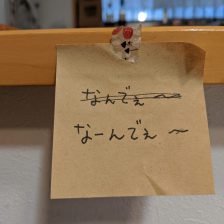 なんでぇ〜
なーんでぇ〜